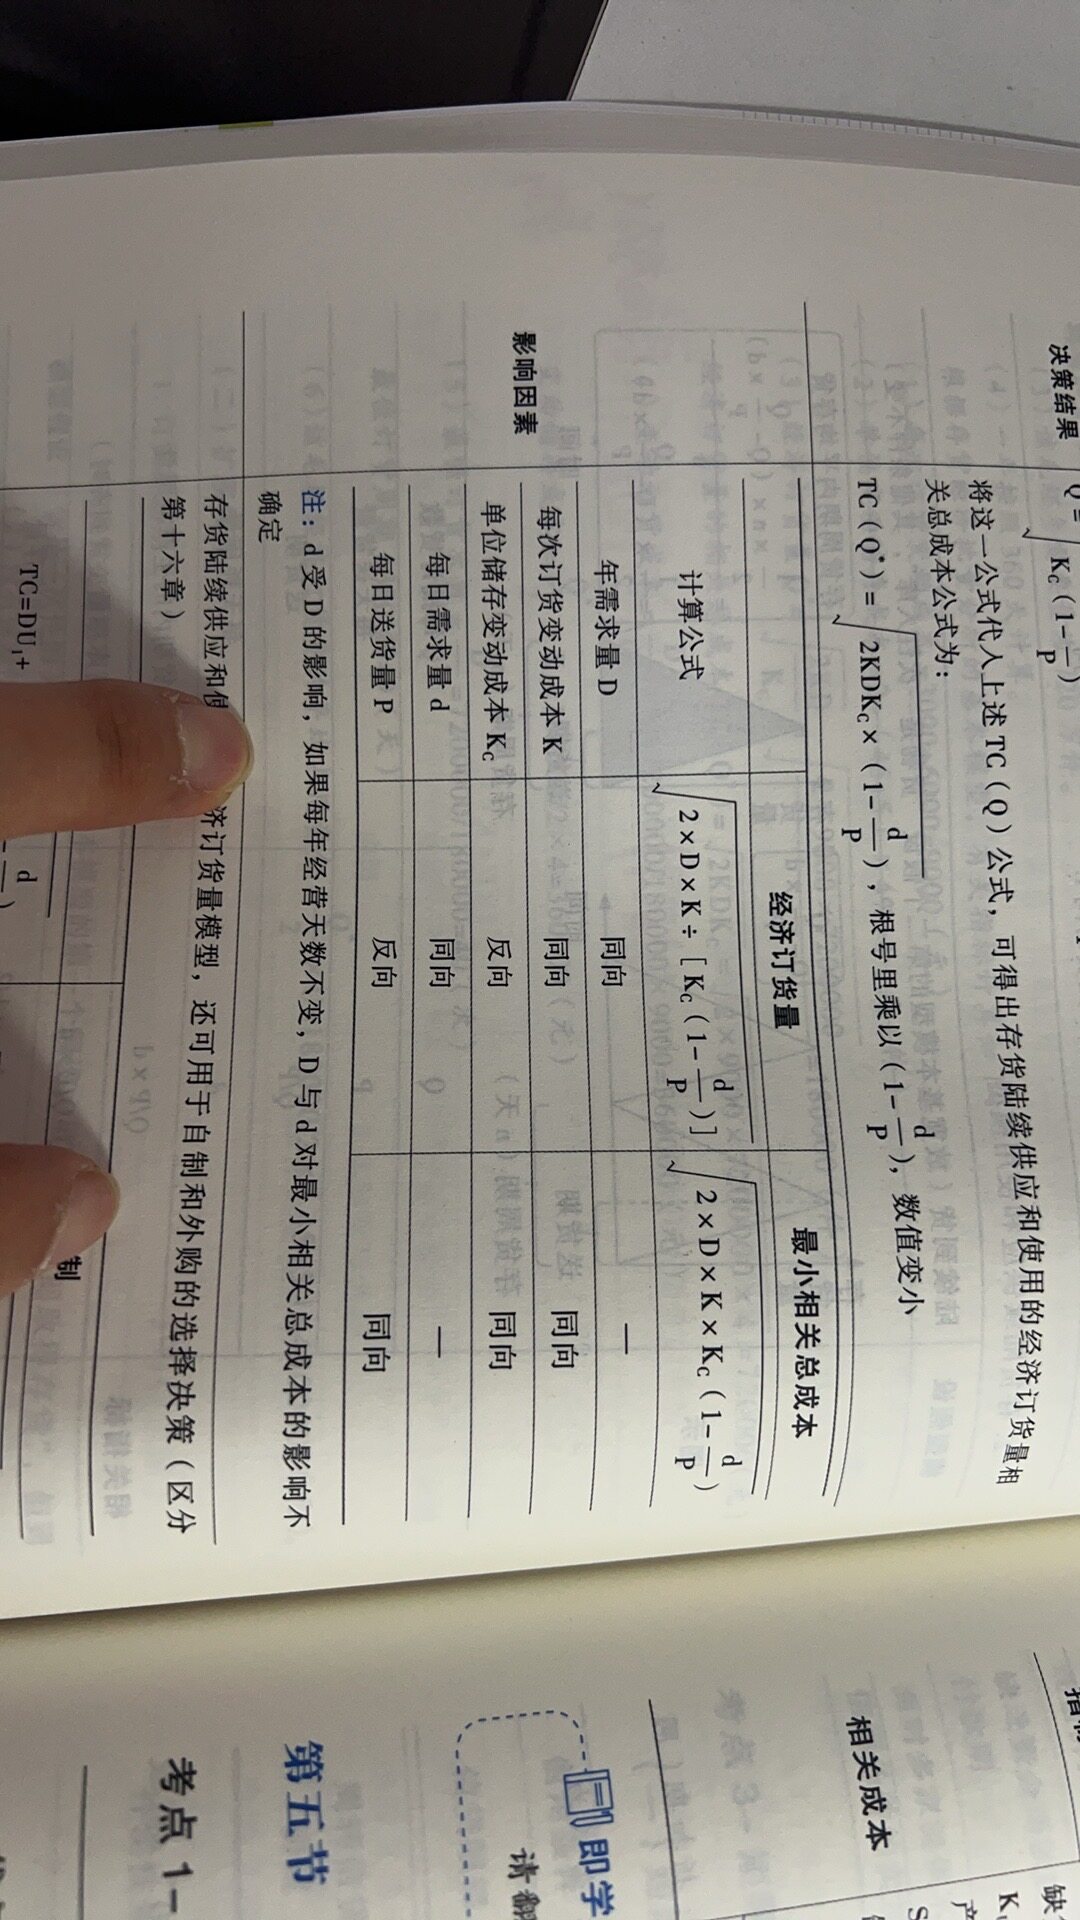 决策结果
Q=√ Kc(1-d/P)
将这一公式代入上述 TC(Q)公式，可得出存货陆续供应和使用的经济订货量相
关总成本公式为：
TC(Q*)=√2KDKc×(1-d/P)，根号里乘以(1-d/P)，数值变小
影响因素
经济订货量 最小相关总成本
计算公式 √2×D×K÷[Kc(1-d/P)] √2×D×K×Kc(1-d/P)
年需求量 D 同向 —
每次订货变动成本 K 同向 同向
单位储存变动成本 Kc 反向 同向
每日需求量 d 同向 —
每日送货量 P 反向 同向
注：d 受 D 的影响，如果每年经营天数不变，D 与 d 对最小相关总成本的影响不
确定
存货陆续供应和 济订货量模型，还可用于自制和外购的选择决策（区分
第十六章）
制
TC=DU₁+
d
相关成本
即学
请翻
第五节
考点 1-